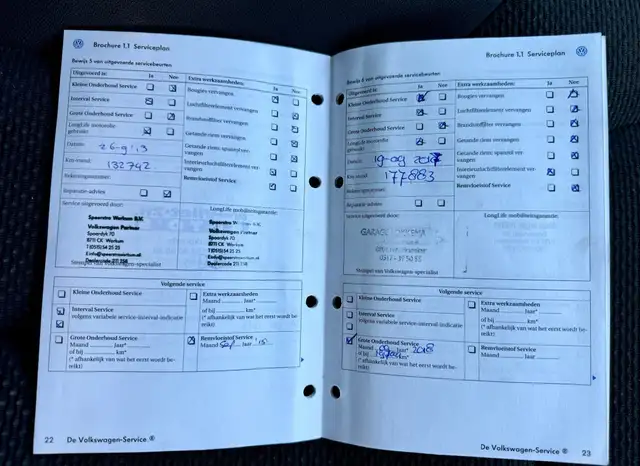 Brochure 1.1 Serviceplan
Bewijs 5 van uitgevoerde servicebeurten
Uitgevoerd is: Ja Nee
Kleine Onderhoud Service
Interval Service
Grote Onderhoud Service
LongLife motorolie gebruikt
Datum: 26-9-'13
Km-stand: 132742
Reparatie-advies
Extra werkzaamheden: Ja Nee
Bougies vervangen
Luchtfilterelement vervangen
Brandstoffilter vervangen
Getande riem vervangen
Getande riem; spanrol vervangen
Interieurluchtfilterelement vervangen
Remvloeistof Service
Service uitgevoerd door:
LongLife mobiliteitsgarantie:
Volkswagen Partner
Spoordyk 70
8711 CK Workum
T (0515) 54 21 25
Stempel van Volkswagen-specialist
Volgende service
Kleine Onderhoud Service
Interval Service
volgens variabele service-interval-indicatie
Grote Onderhoud Service
Maand jaar*
of bij km*
(* afhankelijk van wat het eerst wordt bereikt)
Extra werkzaamheden
Maand jaar*
of bij km*
(* afhankelijk van wat het eerst wordt bereikt)
Remvloeistof Service
Maand jaar '15
22 De Volkswagen-Service ®
Brochure 1.1 Serviceplan
Bewijs 6 van uitgevoerde servicebeurten
Uitgevoerd is: Ja Nee
Kleine Onderhoud Service
Interval Service
Grote Onderhoud Service
LongLife motorolie gebruikt
Datum: 19-09 2017
Km-stand: 177883
Reparatie advies
Extra werkzaamheden: Ja Nee
Bougies vervangen
Luchtfilterelement vervangen
Brandstoffilter vervangen
Getande riem vervangen
Getande riem; spanrol vervangen
Interieurluchtfilterelement vervangen
Remvloeistof Service
Service uitgevoerd door:
LongLife mobiliteitsgarantie:
GARAGE
Stempel van Volkswagen-specialist
Volgende service
Kleine Onderhoud Service
Interval Service
volgens variabele service-interval-indicatie
Grote Onderhoud Service
Maand 09 jaar* 2018
of bij km*
(* afhankelijk van wat het eerst wordt bereikt)
Extra werkzaamheden
Maand jaar*
of bij km*
(* afhankelijk van wat het eerst wordt bereikt)
Remvloeistof Service
Maand jaar
De Volkswagen-Service ® 23